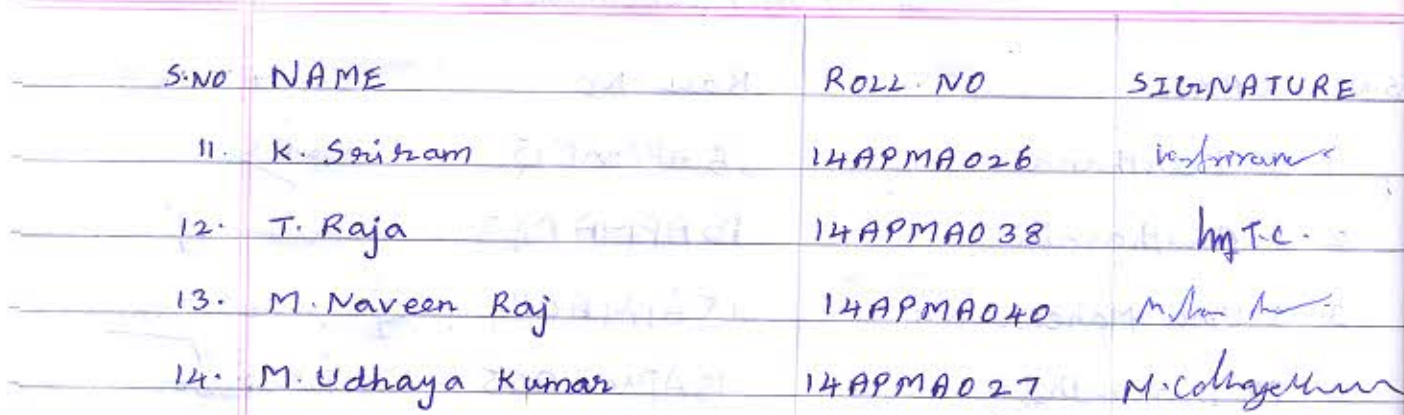 S.NO NAME ROLL NO SIGNATURE
11. K. Sriram 14APMA026 K. Sriram
12. T. Raja 14APMA038
13. M. Naveen Raj 14APMA040
14. M. Udhaya Kumar 14APMA027